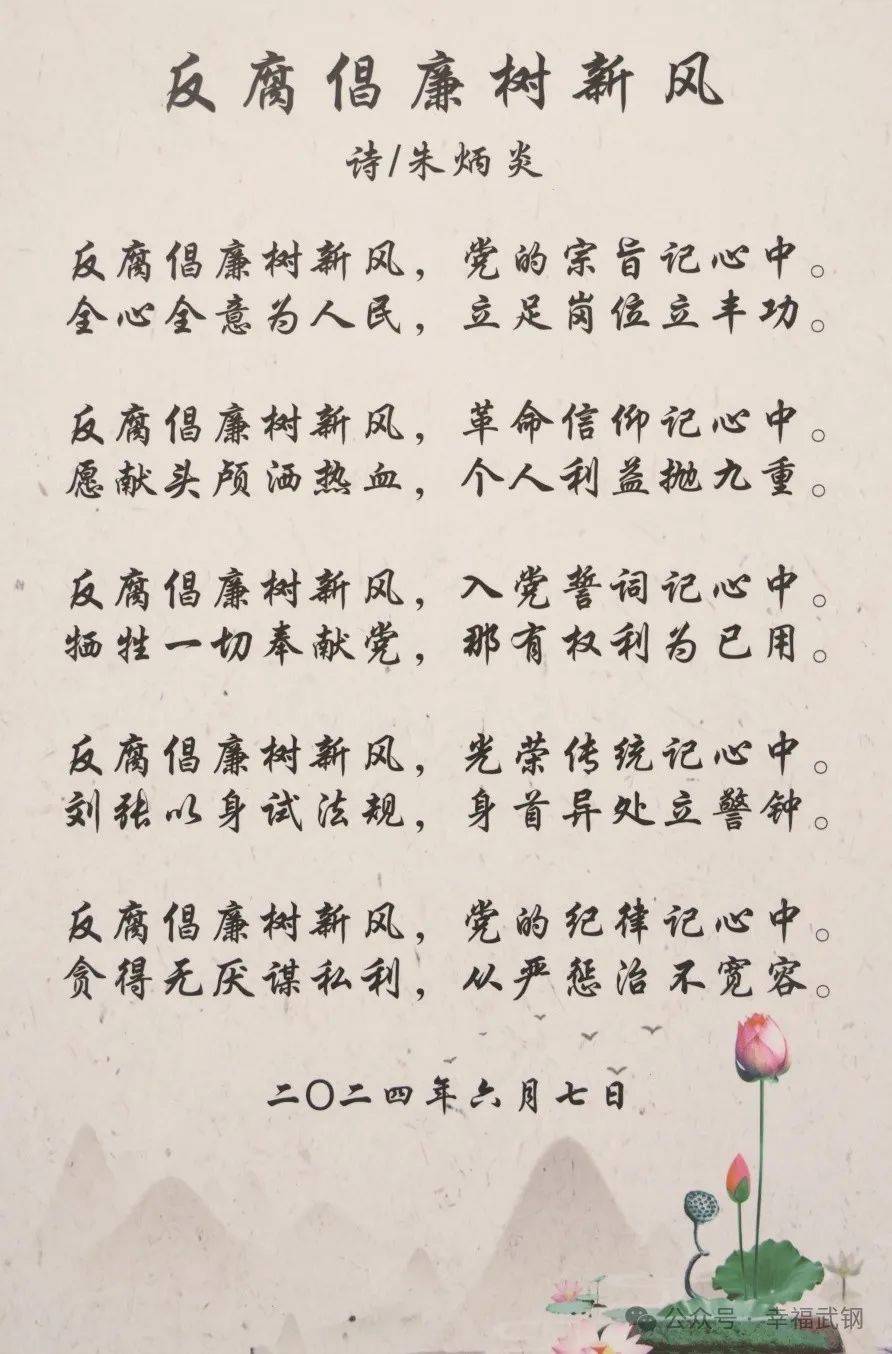 反腐倡廉树新风
诗/朱炳炎
反腐倡廉树新风，党的宗旨记心中。
全心全意为人民，立足岗位立丰功。
反腐倡廉树新风，革命信仰记心中。
愿献头颅洒热血，个人利益抛九重。
反腐倡廉树新风，入党誓词记心中。
牺牲一切奉献党，那有权利为已用。
反腐倡廉树新风，光荣传统记心中。
刘张以身试法规，身首异处立警钟。
反腐倡廉树新风，党的纪律记心中。
贪得无厌谋私利，从严惩治不宽容。
二〇二四年六月七日
公众号·幸福武钢